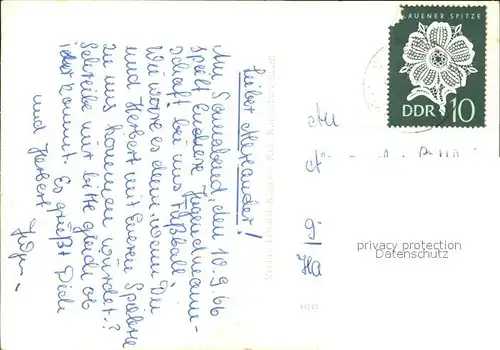 Lieber Alexander!
Am Sonnabend, den 10.9.66
spielt unsere Jugendmann-
schaft bei uns Fußball.
Wie wäre es denn, wenn Du
und Herbert mit Euren
zu uns kommen würdet?
Schreibe mir bitte gleich ob
ihr kommt. Es grüßt Dich
und Herbert
PLAUENER SPITZE
DDR 10
An
Ha
privacy protection
Datenschutz